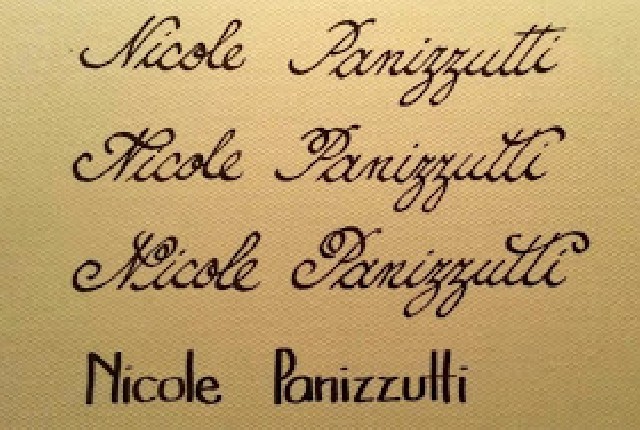 Nicole Panizzutti
Nicole Panizzutti
Nicole Panizzutti
Nicole Panizzutti